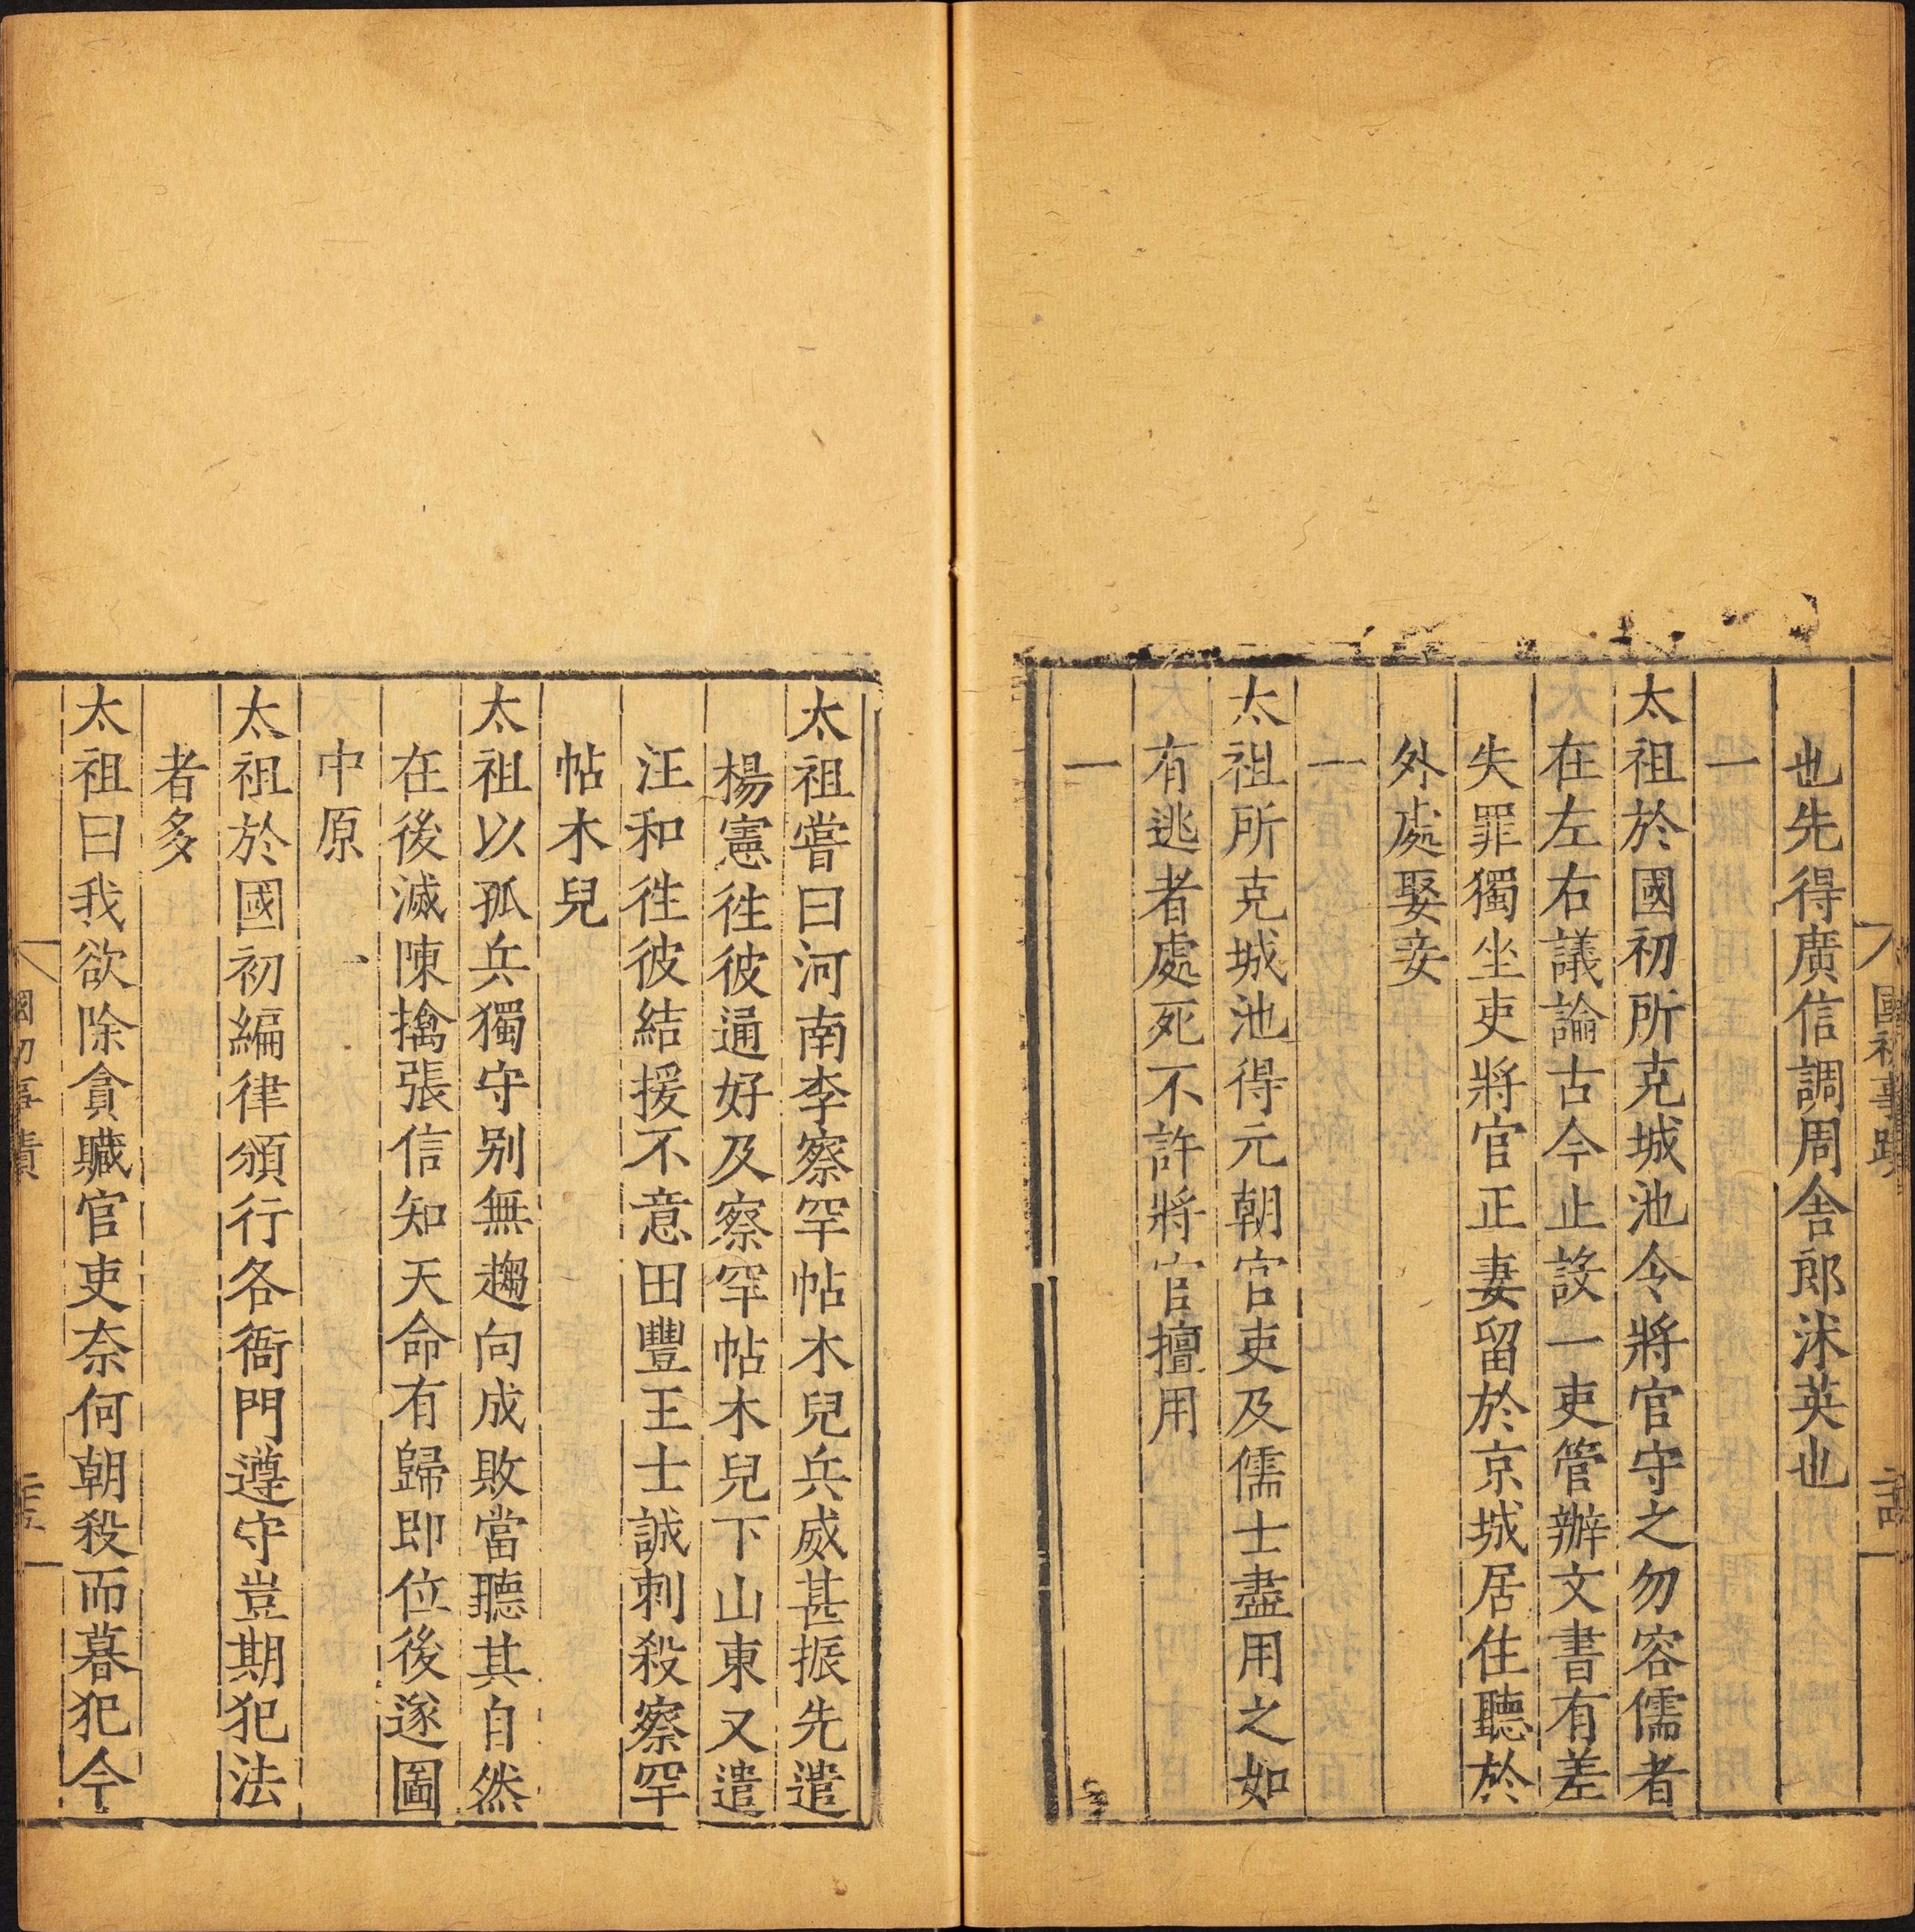 國初事蹟
也先得廣信調周舍郎沐英也
一
太祖於國初所克城池令將官守之勿容儒者
在左右議論古今止設一吏管辦文書有差
失罪獨坐吏將官正妻留於京城居住聽於
外處娶妾
一
太祖所克城池得元朝官吏及儒士盡用之如
有逃者處死不許將官擅用
一
太祖嘗曰河南李察罕帖木兒兵威甚振先遣
楊憲徃彼通好及察罕帖木兒下山東又遣
汪和徃彼結援不意田豐王士誠刺殺察罕
帖木兒
太祖以孤兵獨守别無趨向成敗當聽其自然
在後滅陳擒張信知天命有歸即位後遂圖
中原
太祖於國初編律頒行各衙門遵守豈期犯法
者多
太祖曰我欲除貪贓官吏奈何朝殺而暮犯今